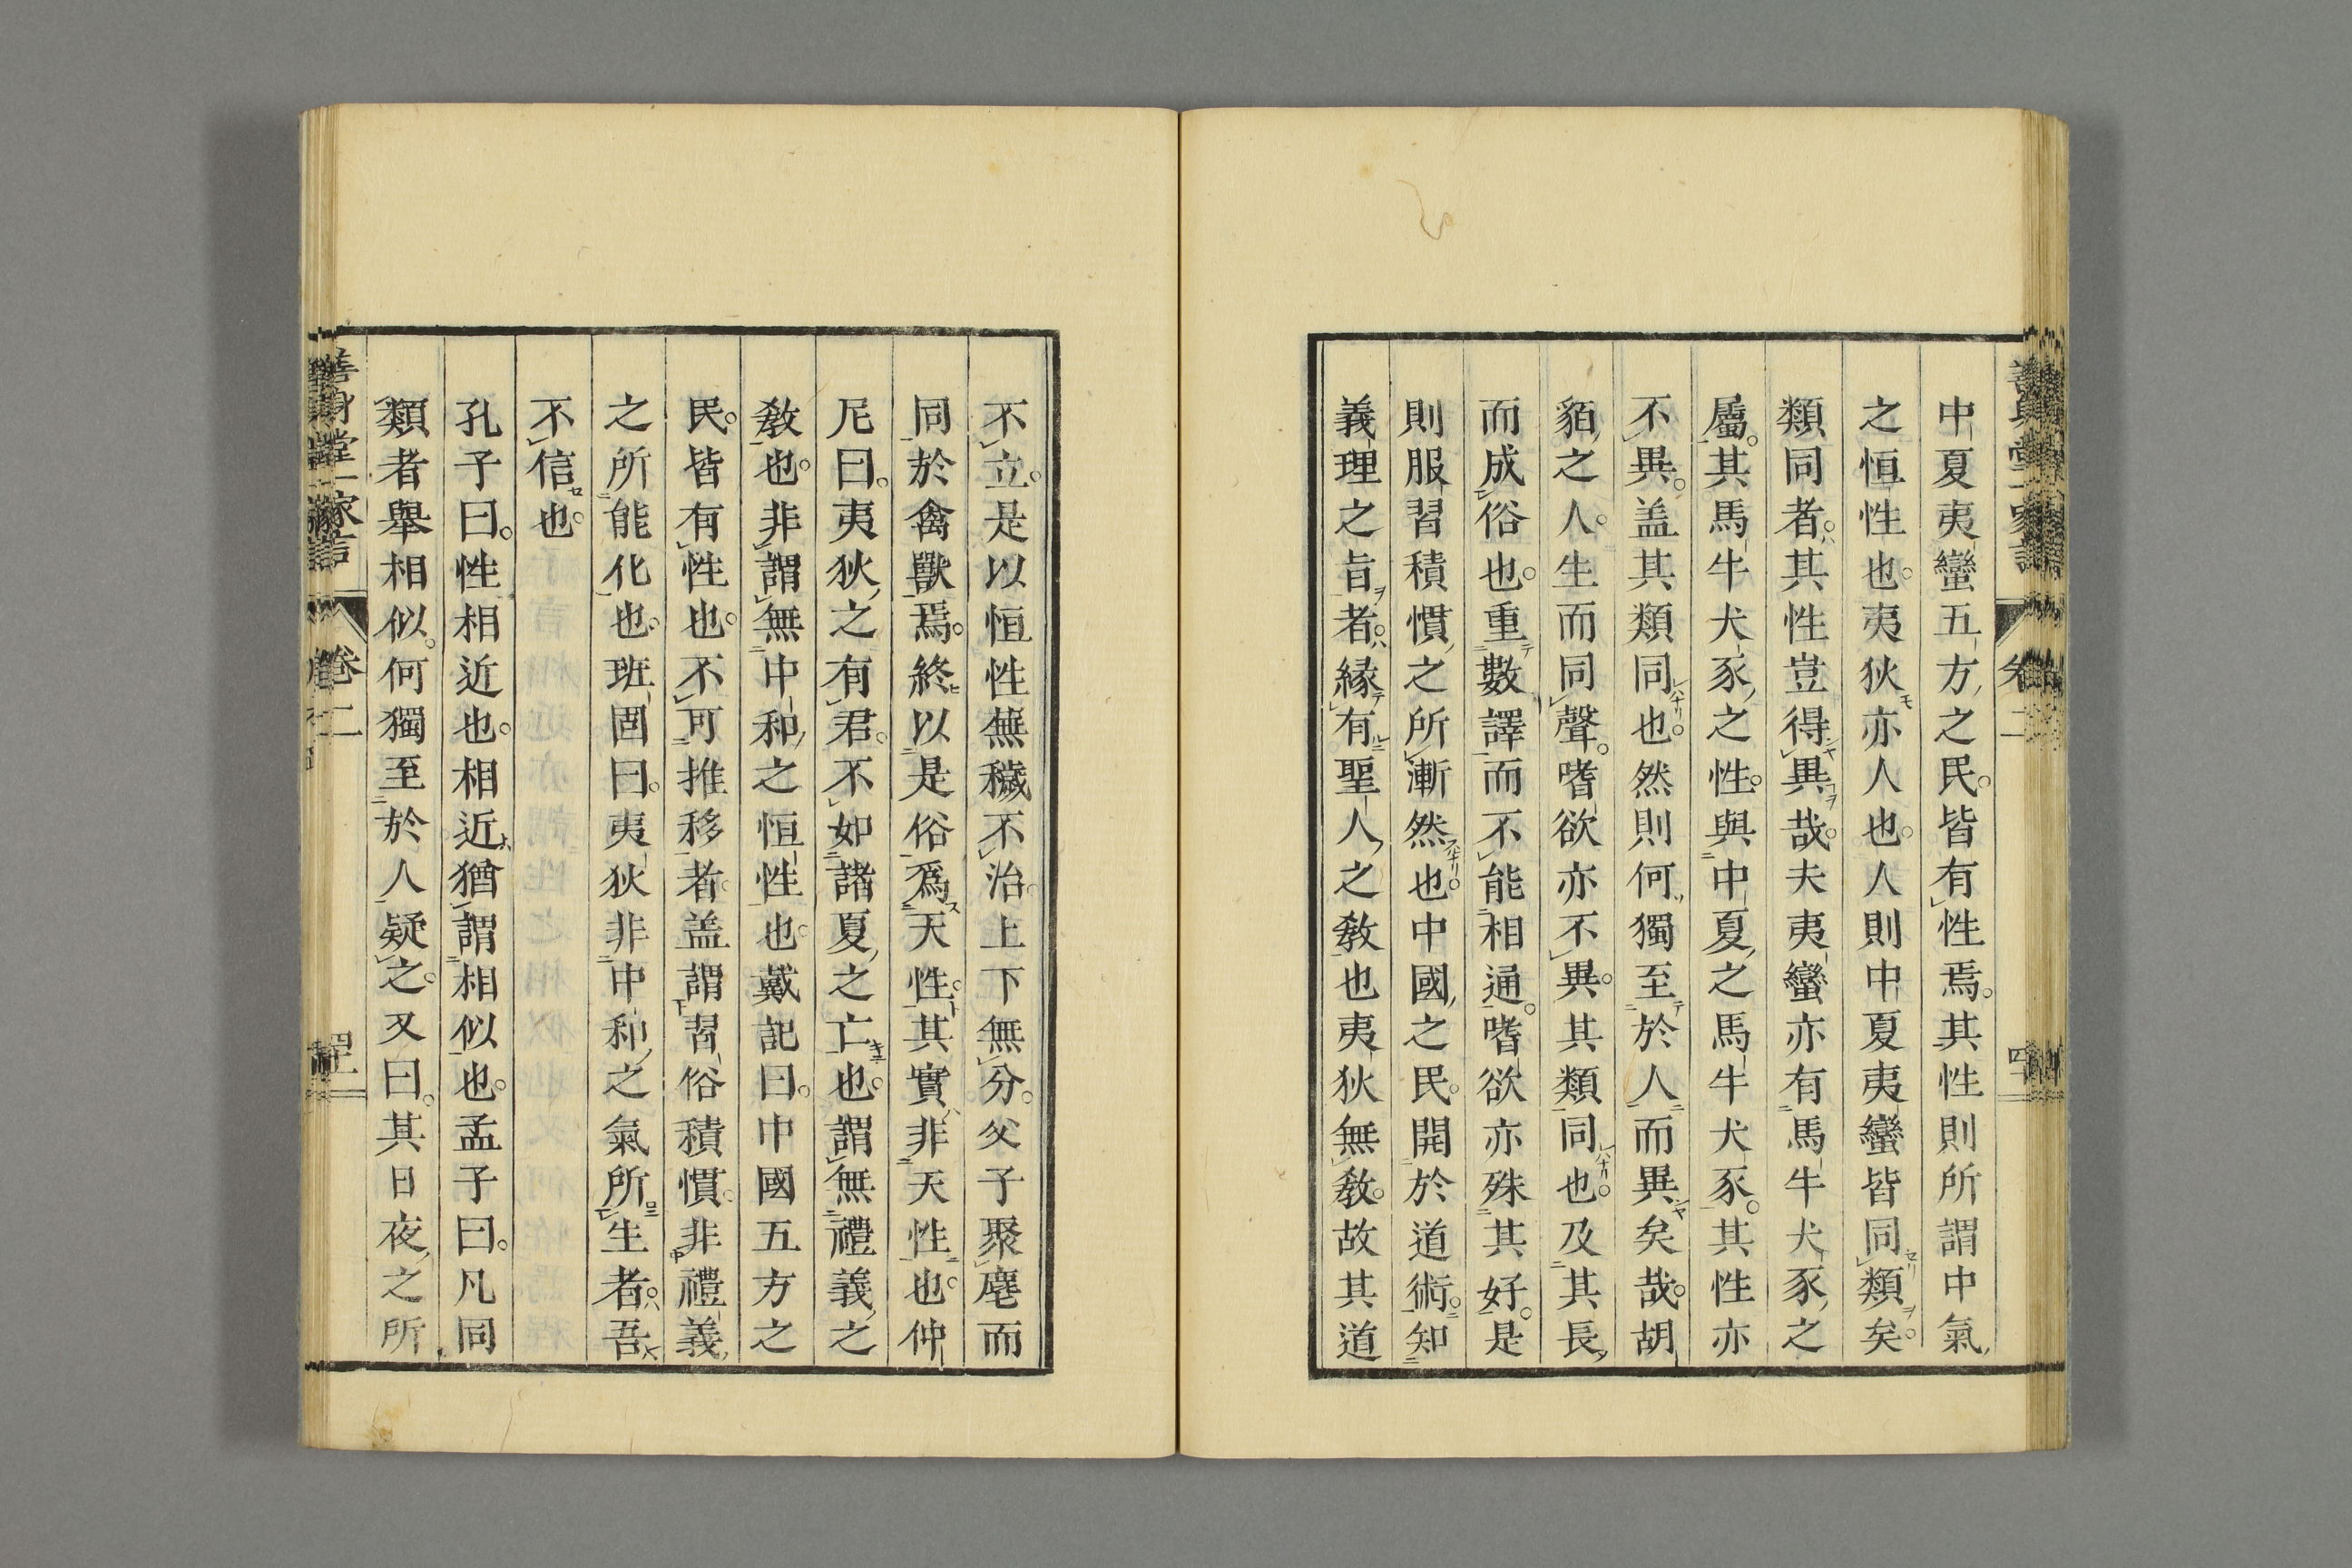 中夏夷蠻五方之民皆有性焉其性則所謂中氣
之恒性也夷狄亦人也人則中夏夷蠻皆同類矣
類同者其性豈得異哉夫夷蠻亦有馬牛犬豕之
屬其馬牛犬豕之性與中夏之馬牛犬豕其性亦
不異盖其類同也然則何獨至於人而異矣哉胡
貊之人生而同聲嗜欲亦不異其類同也及其長
而成俗也重數譯而不能相通嗜欲亦殊其好是
則服習積慣之所漸然也中國之民開於道術知
義理之旨者緣有聖人之教也夷狄無教故其道
不立是以恒性蕪穢不治上下無分父子聚麀而
同於禽獸焉終以是俗爲天性其實非天性也仲
尼曰夷狄之有君不如諸夏之亡也謂無禮義之
教也非謂無中和之恒性也戴記曰中國五方之
民皆有性也不可推移者盖謂習俗積慣非禮義
之所能化也班固曰夷狄非中和之氣所生者吾
不信也
孔子曰性相近也相近猶謂相似也孟子曰凡同
類者舉相似何獨至於人疑之又曰其日夜之所
卷二